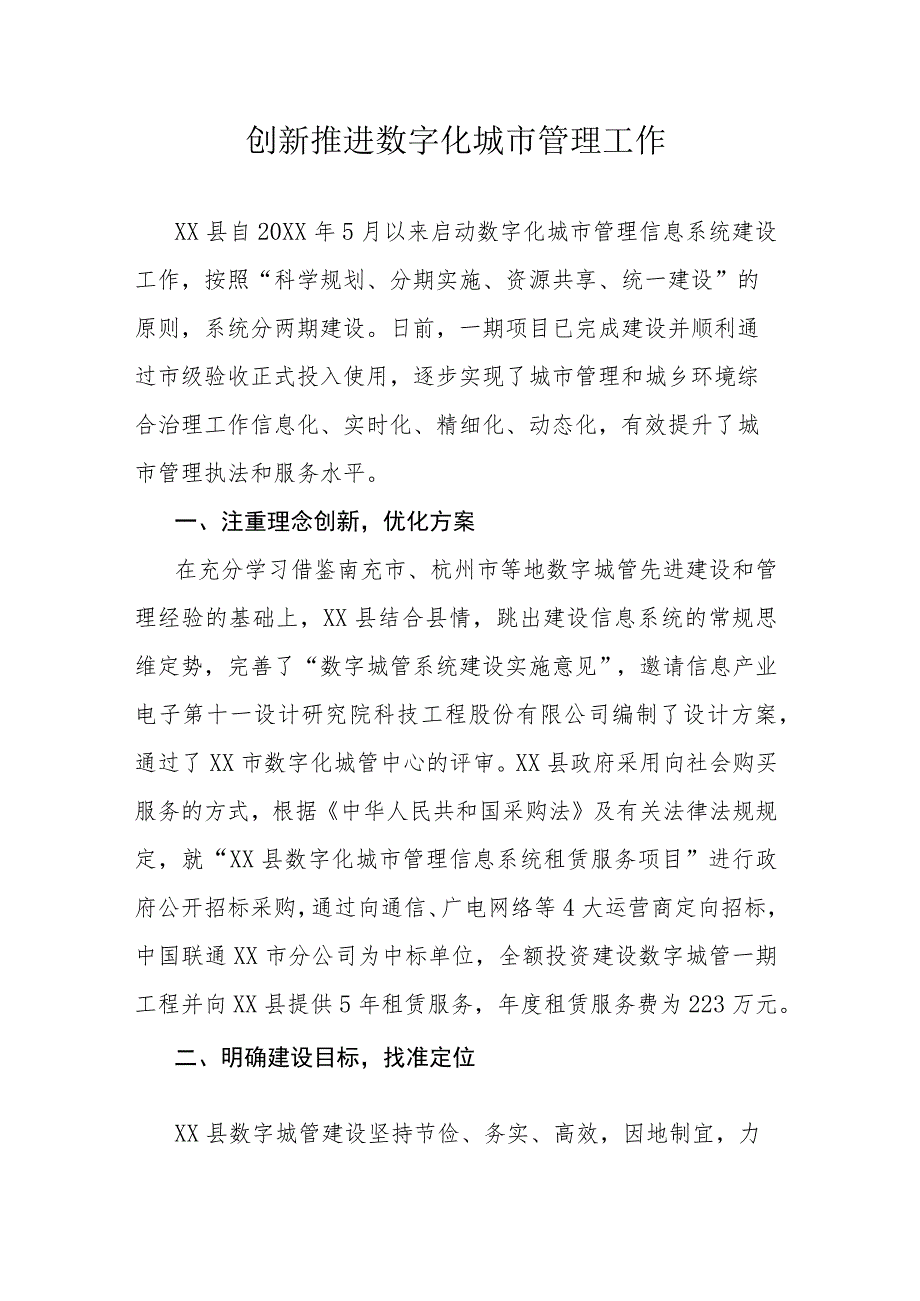 创新推进数字化城市管理工作
XX县自20XX年5月以来启动数字化城市管理信息系统建设
工作，按照“科学规划、分期实施、资源共享、统一建设”的
原则，系统分两期建设。日前，一期项目已完成建设并顺利通
过市级验收正式投入使用，逐步实现了城市管理和城乡环境综
合治理工作信息化、实时化、精细化、动态化，有效提升了城
市管理执法和服务水平。
一、注重理念创新，优化方案
在充分学习借鉴南充市、杭州市等地数字城管先进建设和管
理经验的基础上，XX县结合县情，跳出建设信息系统的常规思
维定势，完善了“数字城管系统建设实施意见”，邀请信息产业
电子第十一设计研究院科技工程股份有限公司编制了设计方案，
通过了XX市数字化城管中心的评审。XX县政府采用向社会购买
服务的方式，根据《中华人民共和国采购法》及有关法律法规规
定，就“XX县数字化城市管理信息系统租赁服务项目”进行政
府公开招标采购，通过向通信、广电网络等4大运营商定向招标，
中国联通XX市分公司为中标单位，全额投资建设数字城管一期
工程并向XX县提供5年租赁服务，年度租赁服务费为223万元。
二、明确建设目标，找准定位
XX县数字城管建设坚持节俭、务实、高效，因地制宜，力